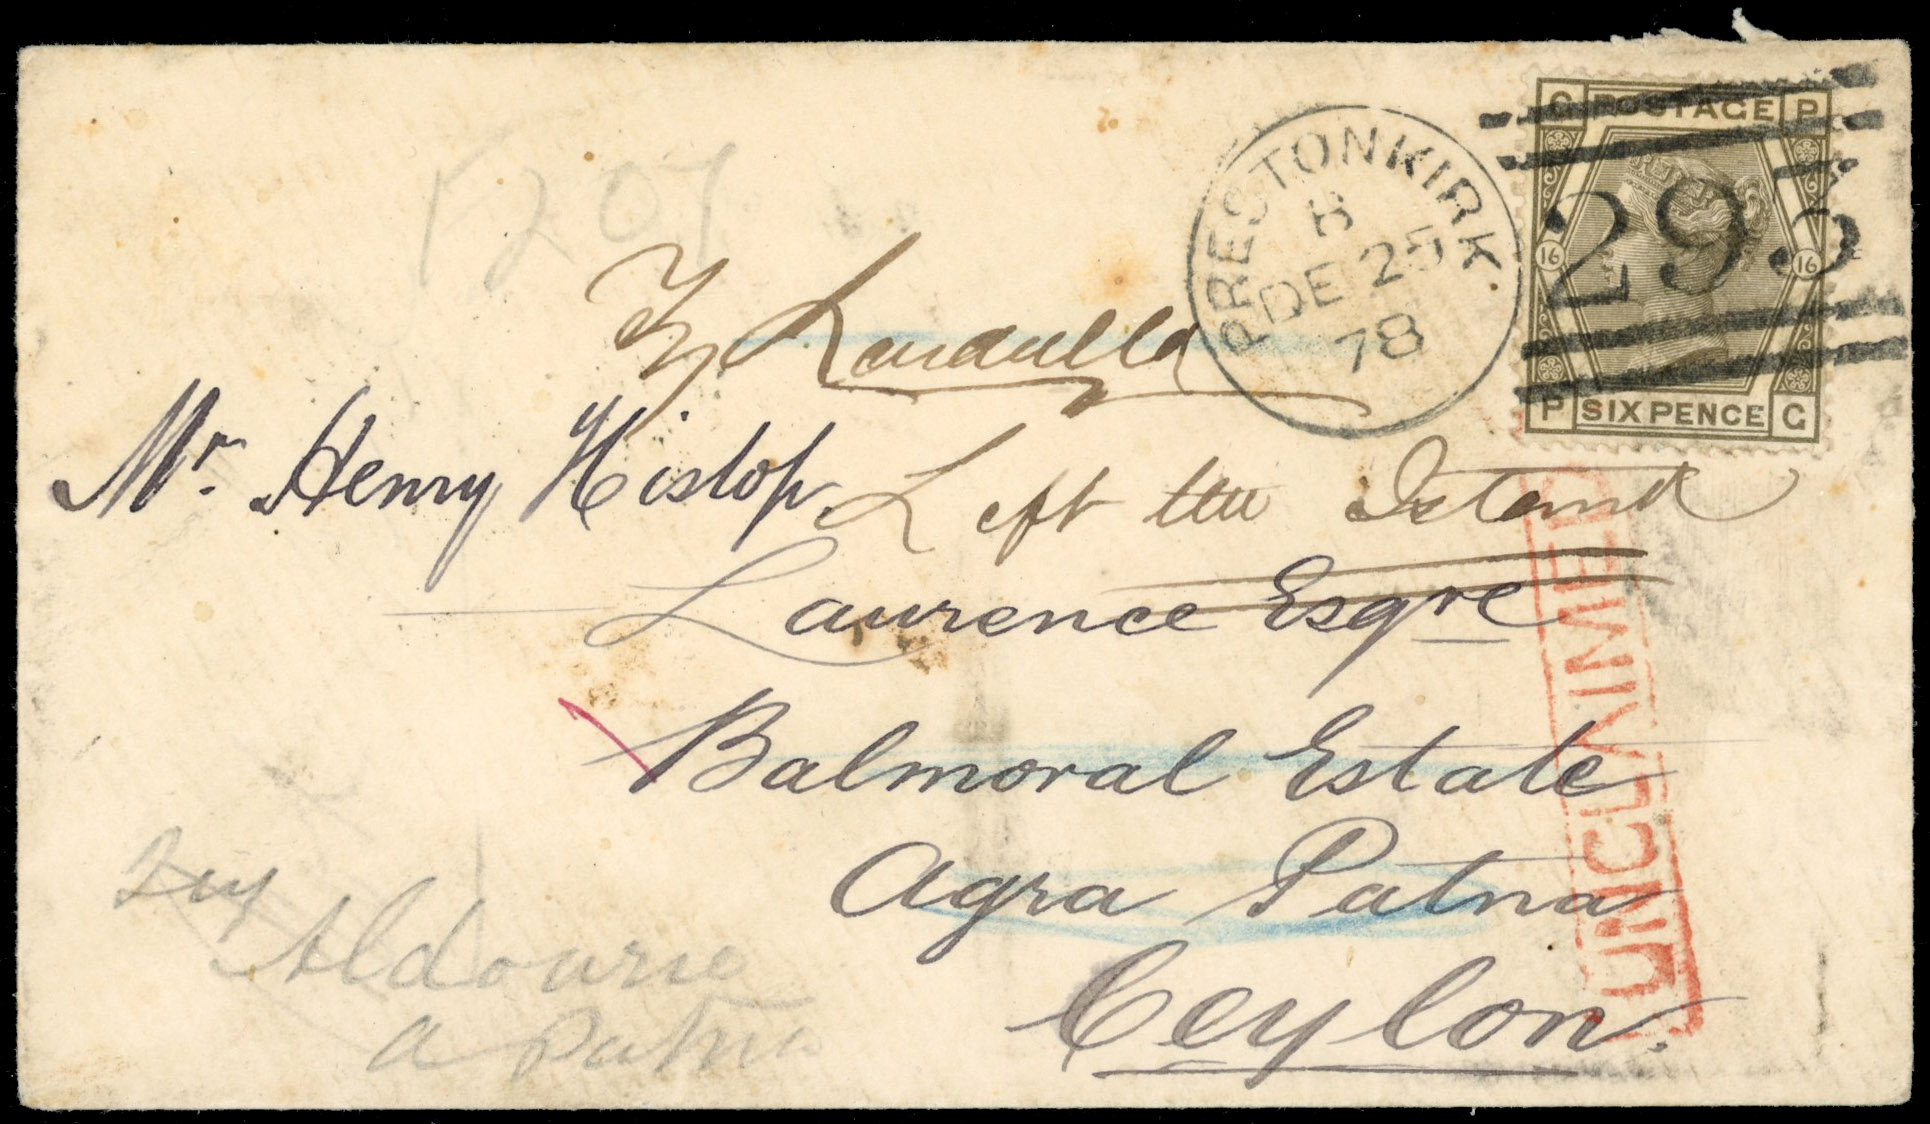 G POSTAGE P
16 16
P SIX PENCE G
295
PRESTONKIRK
B
DE 25
78
F207
Try
Mr. Henry Hislop
Left the Island
Laurence Esqre
Balmoral Estate
Agra Patna
Ceylon.
UNCLAIMED
Try Aldourie
A Patna